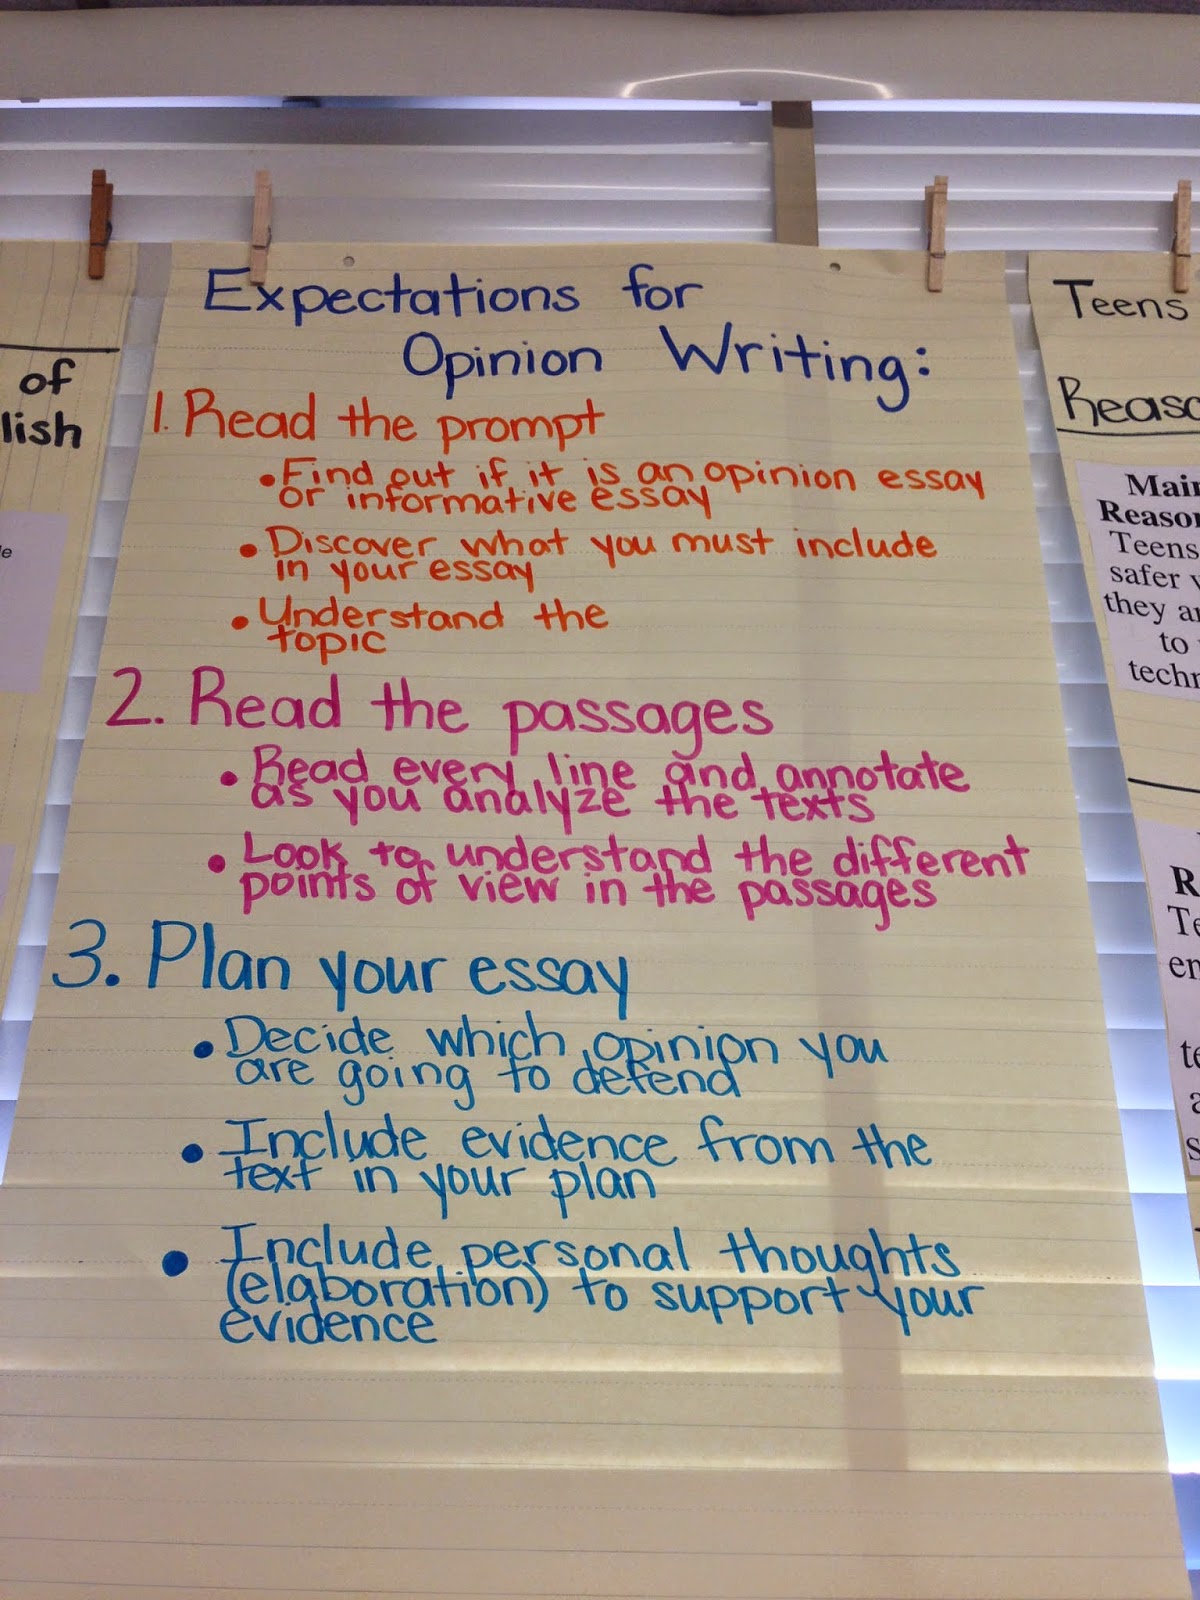 Expectations for
Opinion Writing:
1. Read the prompt
• Find out if it is an opinion essay
or informative essay
• Discover what you must include
in your essay
• Understand the
topic
2. Read the passages
• Read every line and annotate
as you analyze the texts
• Look to understand the different
points of view in the passages
3. Plan your essay
• Decide which opinion you
are going to defend
• Include evidence from the
text in your plan
• Include personal thoughts
(elaboration) to support your
evidence
of
lish
Teens
Teens
safer
they
to